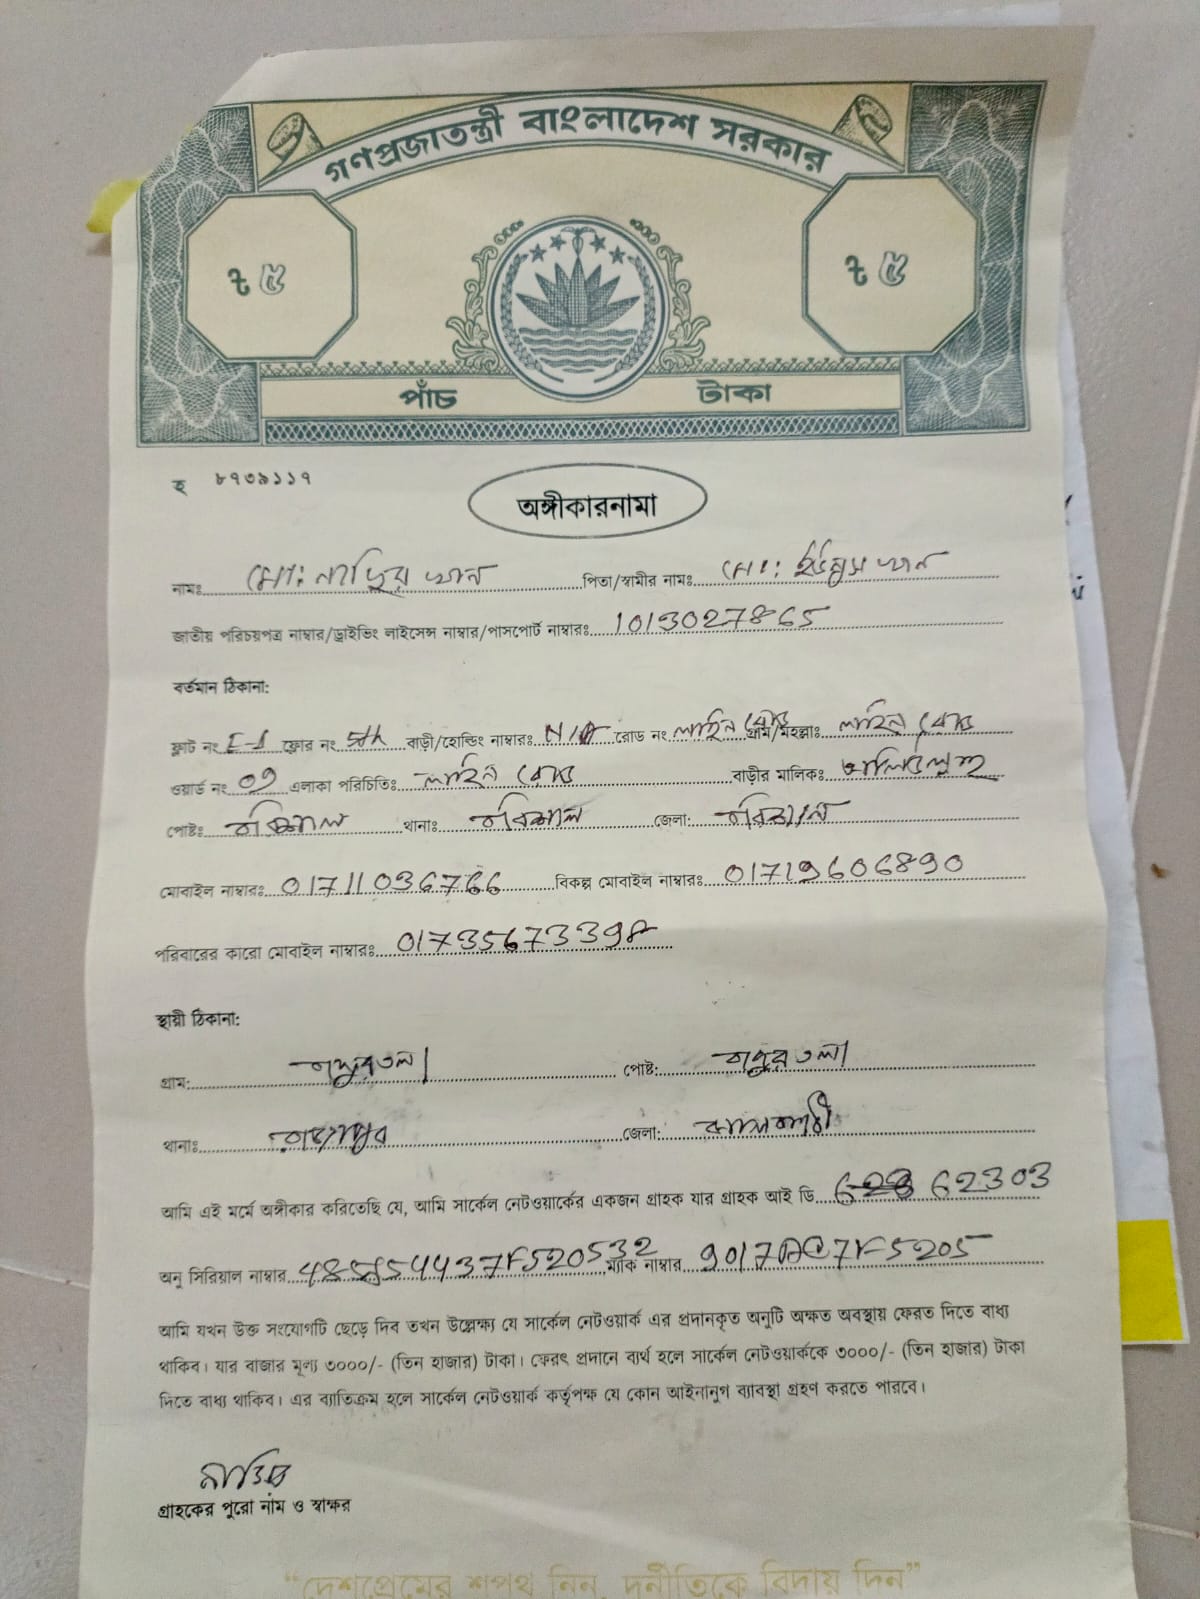 গণপ্রজাতন্ত্রী বাংলাদেশ সরকার
৳ ৫ ৳ ৫
পাঁচ টাকা
হ ৮৭৩৯১১৭
অঙ্গীকারনামা
নামঃ মো: নাছির খান পিতা/স্বামীর নামঃ মো: ইউনুস খান
জাতীয় পরিচয়পত্র নাম্বার/ড্রাইভিং লাইসেন্স নাম্বার/পাসপোর্ট নাম্বারঃ 1013027865
বর্তমান ঠিকানা:
ফ্লাট নং E-1 ফ্লোর নং 5th বাড়ী/হোল্ডিং নাম্বারঃ N/A রোড নং লাইন রোড গ্রাম/মহল্লাঃ লাইন রোড
ওয়ার্ড নং 09 এলাকা পরিচিতিঃ লাইন রোড বাড়ীর মালিকঃ
পোষ্টঃ বরিশাল থানাঃ বরিশাল জেলা: বরিশাল
মোবাইল নাম্বারঃ 01711036766 বিকল্প মোবাইল নাম্বারঃ 01719606890
পরিবারের কারো মোবাইল নাম্বারঃ 01735673398
স্থায়ী ঠিকানা:
গ্রাম: পোষ্ট:
থানাঃ রাজাপুর জেলা: ঝালকাঠী
আমি এই মর্মে অঙ্গীকার করিতেছি যে, আমি সার্কেল নেটওয়ার্কের একজন গ্রাহক যার গ্রাহক আই ডি 62303
অনু সিরিয়াল নাম্বার ম্যাক নাম্বার 9017AC7F5205
আমি যখন উক্ত সংযোগটি ছেড়ে দিব তখন উল্লেক্ষ্য যে সার্কেল নেটওয়ার্ক এর প্রদানকৃত অনুটি অক্ষত অবস্থায় ফেরত দিতে বাধ্য
থাকিব। যার বাজার মূল্য ৩০০০/- (তিন হাজার) টাকা। ফেরৎ প্রদানে ব্যর্থ হলে সার্কেল নেটওয়ার্ককে ৩০০০/- (তিন হাজার) টাকা
দিতে বাধ্য থাকিব। এর ব্যাতিক্রম হলে সার্কেল নেটওয়ার্ক কর্তৃপক্ষ যে কোন আইনানুগ ব্যাবস্থা গ্রহণ করতে পারবে।
নাছির
গ্রাহকের পুরো নাম ও স্বাক্ষর
“দেশপ্রেমের শপথ নিন, দুর্নীতিকে বিদায় দিন”